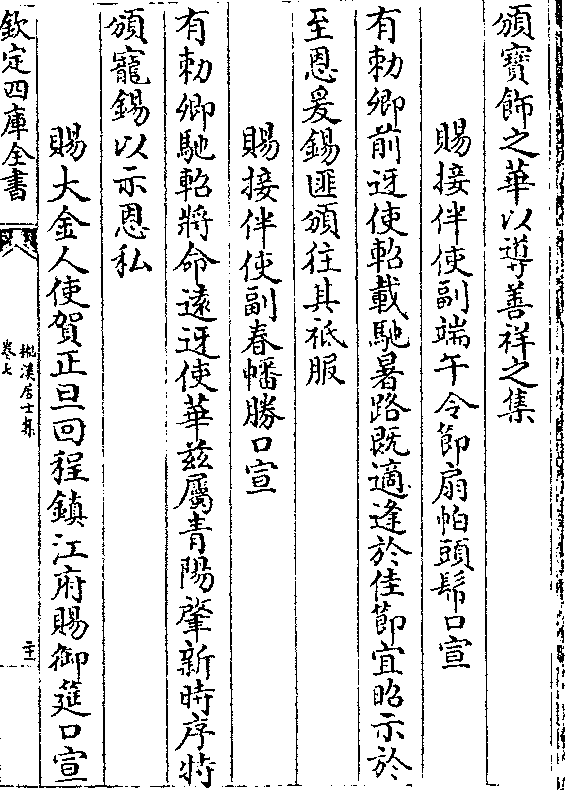 頒寶飾之華以導善祥之集
賜接伴使副端午令節扇帕頭䯻口宣
有勅卿前迓使軺載馳暑路既適逢於佳節宜昭示於
至恩爰錫匪頒往其祗服
賜接伴使副春幡勝口宣
有勅卿馳軺將命遠迓使華兹屬青陽肇新時序特
頒寵錫以示恩私
賜大金人使賀正旦回程鎮江府賜御筵口宣
欽定四庫全書
卷七